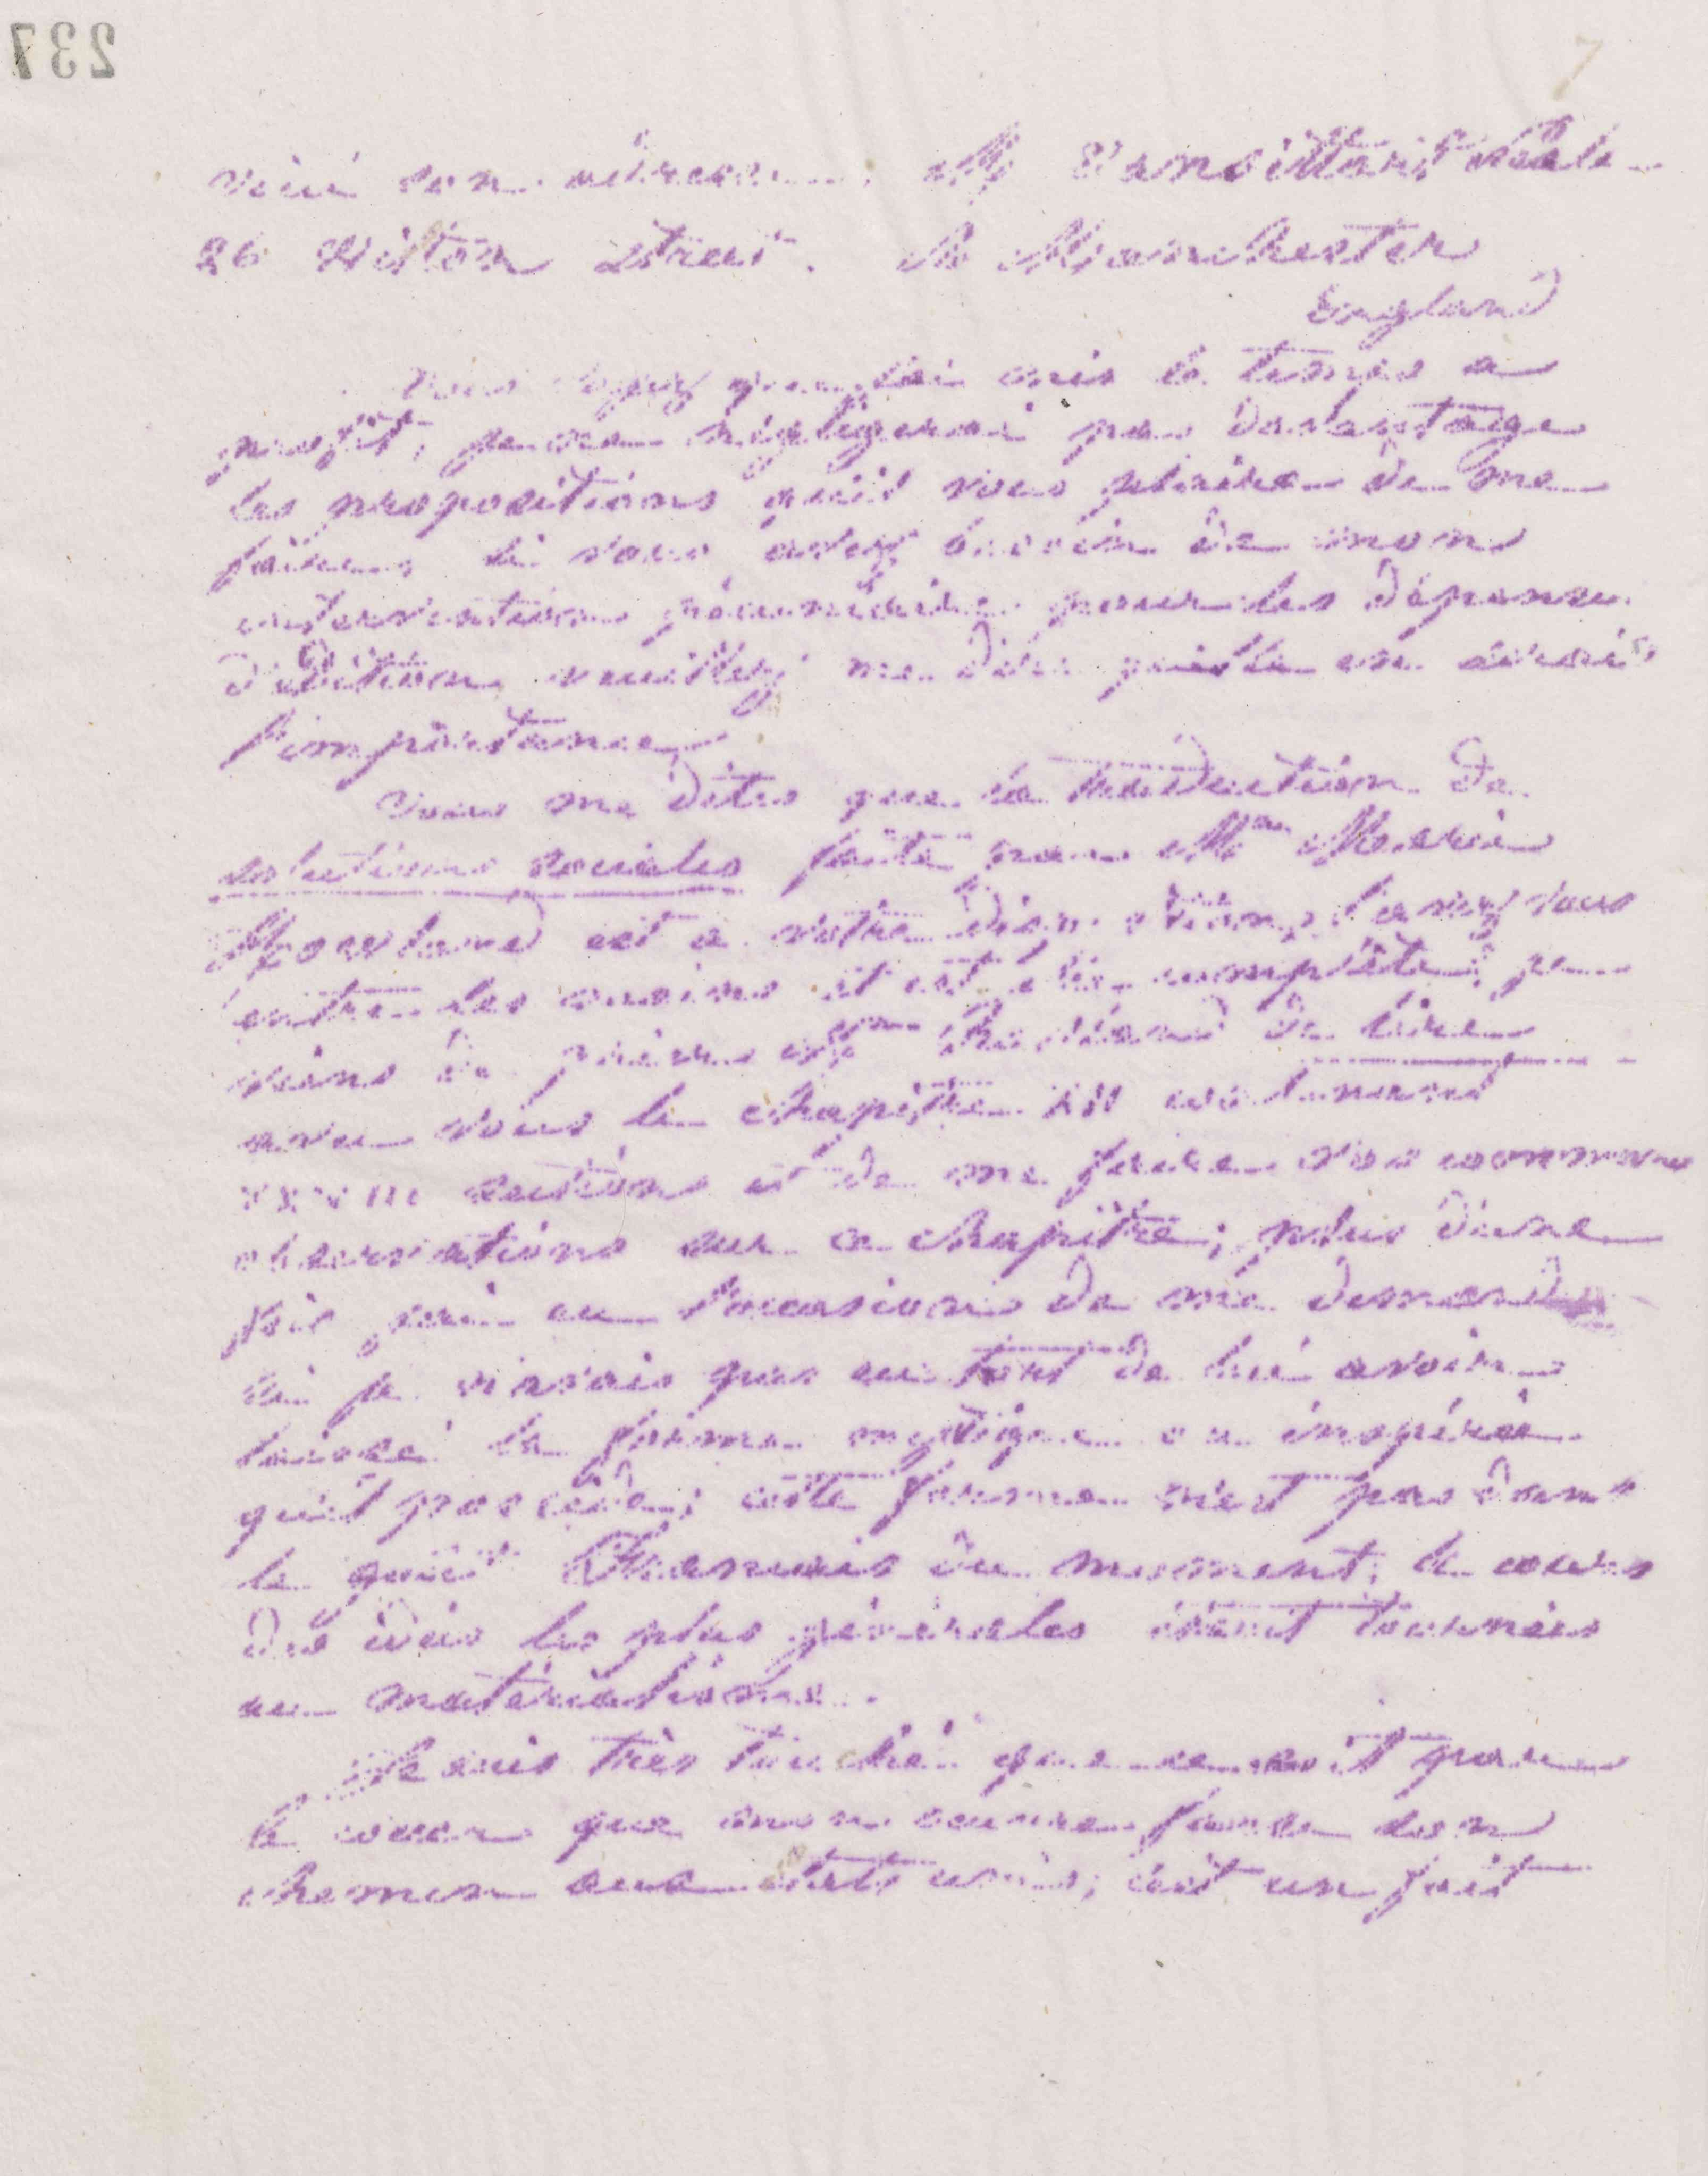 237
7
voici son adresse. Mr Vansittart Neale
26 Wilton Street. à Manchester
England
vous voyez que j'ai mis le temps a
profit, je ne négligerai pas davantage
les propositions qu'il vous plaira de me
faire, si vous avez besoin de mon
intervention pécuniaire pour les dépenses
d'édition veuillez me dire quelle en serait
l'importance.
Vous me dites que la traduction de
solutions sociales faite par Mme Marie
Howland est a votre disposition, l'avez vous
entre les mains et est elle complète? je
viens de prier Mme Howland de lire
avec vous le chapitre
section et de me faire vos communes
observations sur ce chapitre; plus d'une
fois j'ai eu l'occasion de me demander
si je n'avais pas eu tort de lui avoir
laissé la forme mystique ou inspirée
qu'il possède; cette forme n'est pas dans
le goût Français du moment, le cours
des idées les plus générales étant tournées
au matérialisme.
Je suis très touché que ce soit par
le coeur que mon oeuvre fasse son
chemin aux états unis; c'est un fait